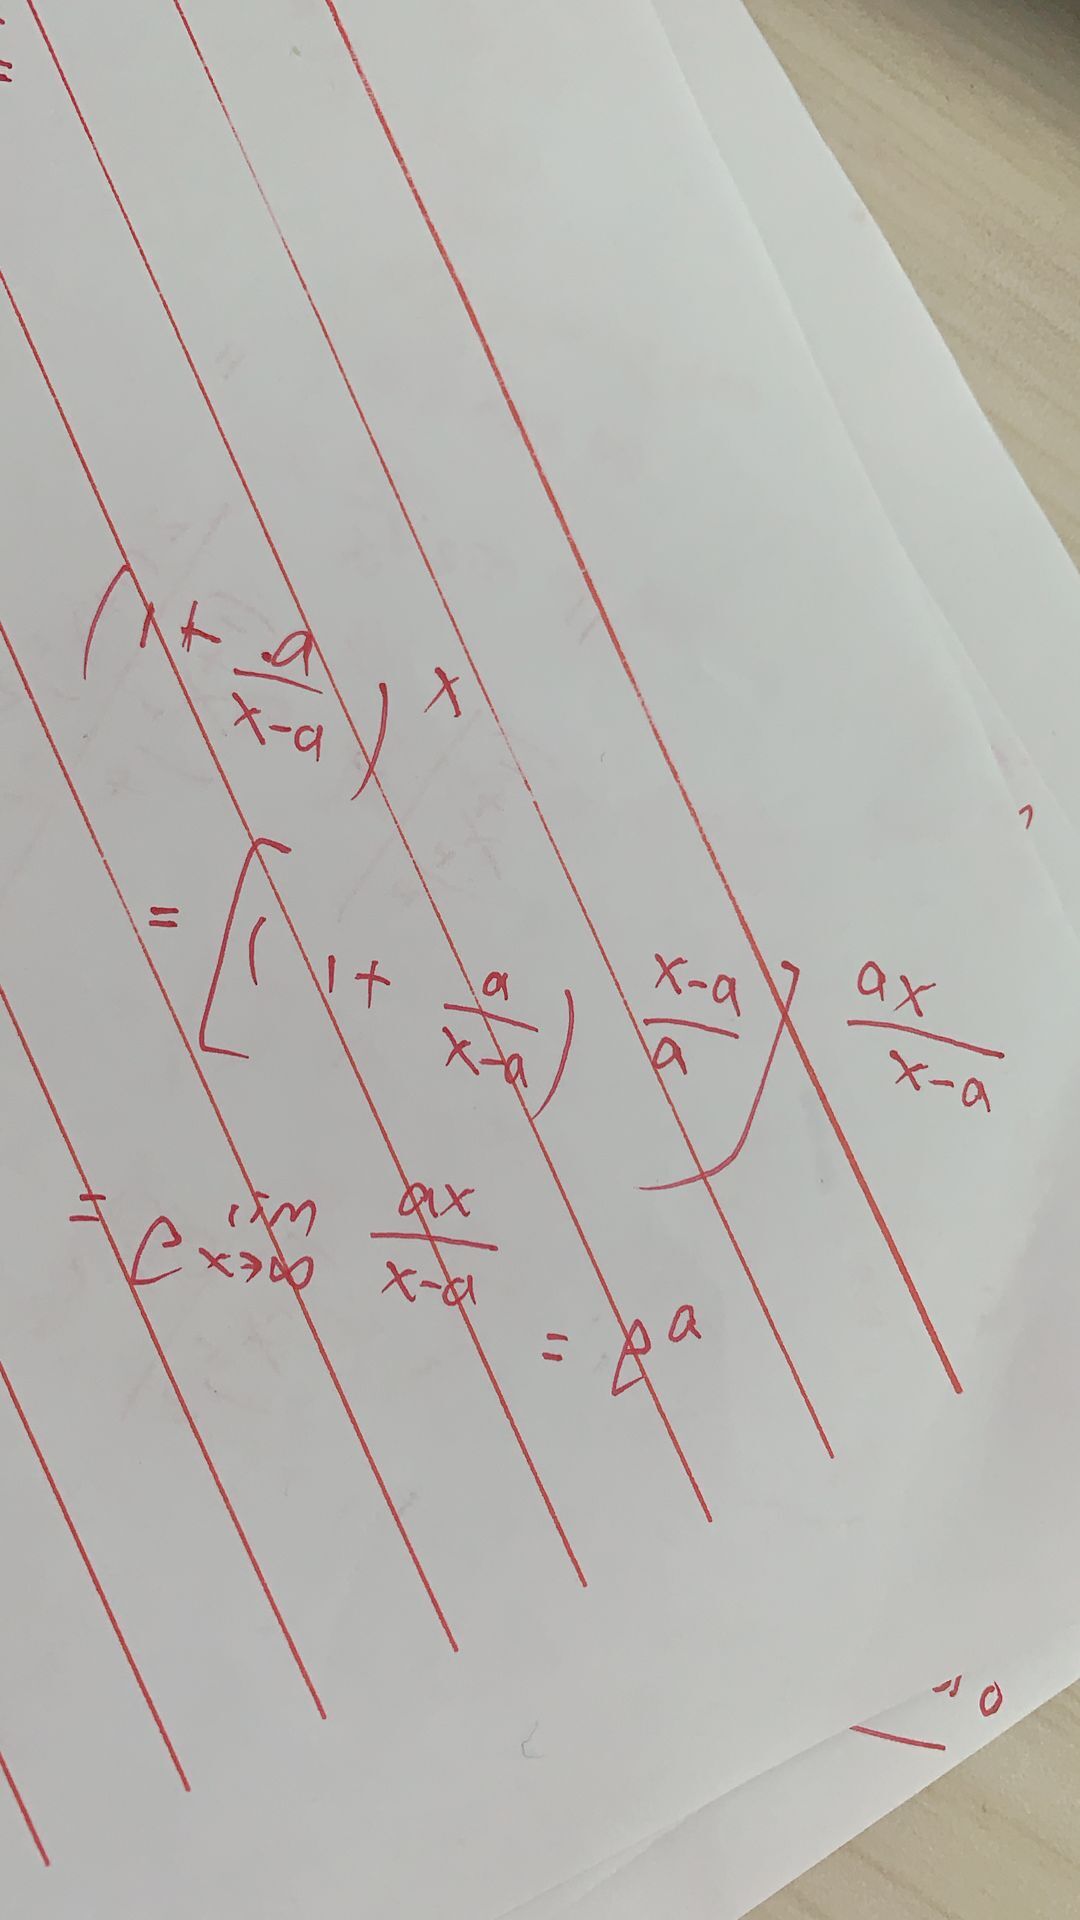 =
(1 + a/(x-a))^x
= [(1 + a/(x-a))^((x-a)/a)]^(ax/(x-a))
= e^(lim x→∞ ax/(x-a)) = e^a
= 0